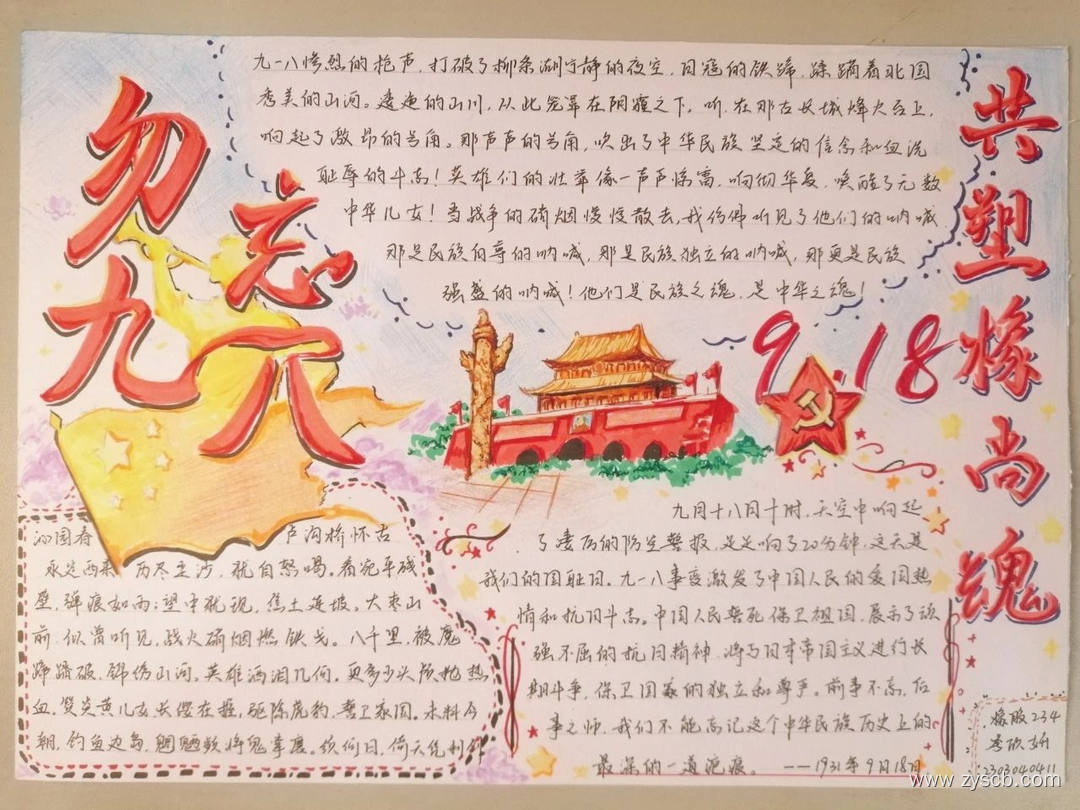 勿忘
九一八
九一八惨烈的枪声,打破了柳条湖宁静的夜空,日寇的铁蹄,踩踏着北国
秀美的山河。逶迤的山川,从此笼罩在阴霾之下。听,在那古长城烽火台上,
响起了激昂的号角。那声声的号角,吹出了中华民族坚定的信念和血洗
耻辱的斗志!英雄们的壮举像一声声惊雷,响彻华夏,唤醒了无数
中华儿女!当战争的硝烟慢慢散去,我仿佛听见了他们的呐喊
那是民族自尊的呐喊,那是民族独立的呐喊,那更是民族
强盛的呐喊!他们是民族之魂,是中华之魂!
共塑橡尚魂
9.18
沁园春 卢沟桥怀古
永定西来,历尽尘沙,犹自怒喝。看宛平残
壁,弹痕如雨;望中犹现,焦土连坡。大枣山
前,似曾听见,战火硝烟燃铁戈。八千里,被魔
蹄踏破,锦伤山河。英雄洒泪几何,更多少头颅抛热
血。赞炎黄儿女,长缨在握,驱除虎豹,誓卫家国。未料今
朝,钓鱼边岛,魍魉欲将鬼掌磨。须何日,倚天凭利
九月十八日十时,天空中响起
了凄厉的防空警报,足足响了20分钟,这天是
我们的国耻日。九一八事变激发了中国人民的爱国热
情和抗日斗志。中国人民誓死保卫祖国,展示了顽
强不屈的抗日精神,将与日本帝国主义进行长
期斗争,保卫国家的独立和尊严。前事不忘,后
事之师,我们不能忘记这个中华民族历史上的
最深的一道疤痕。——1931年9月18日
橡服234
2303040411
www.zyscb.com